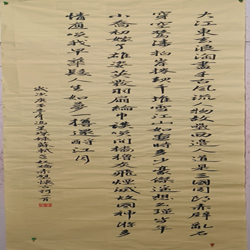 大江東去浪淘盡千古風流人物故壘西邊人道是三國周郎赤壁亂石
穿空驚濤拍岸捲起千堆雪江山如畫一時多少豪傑遙想公瑾當年
小喬初嫁了雄姿英發羽扇綸巾談笑間檣櫓灰飛煙滅故國神遊多
情應笑我早生華髮人生如夢一樽還酹江月
蘇軾念奴嬌赤壁懷古